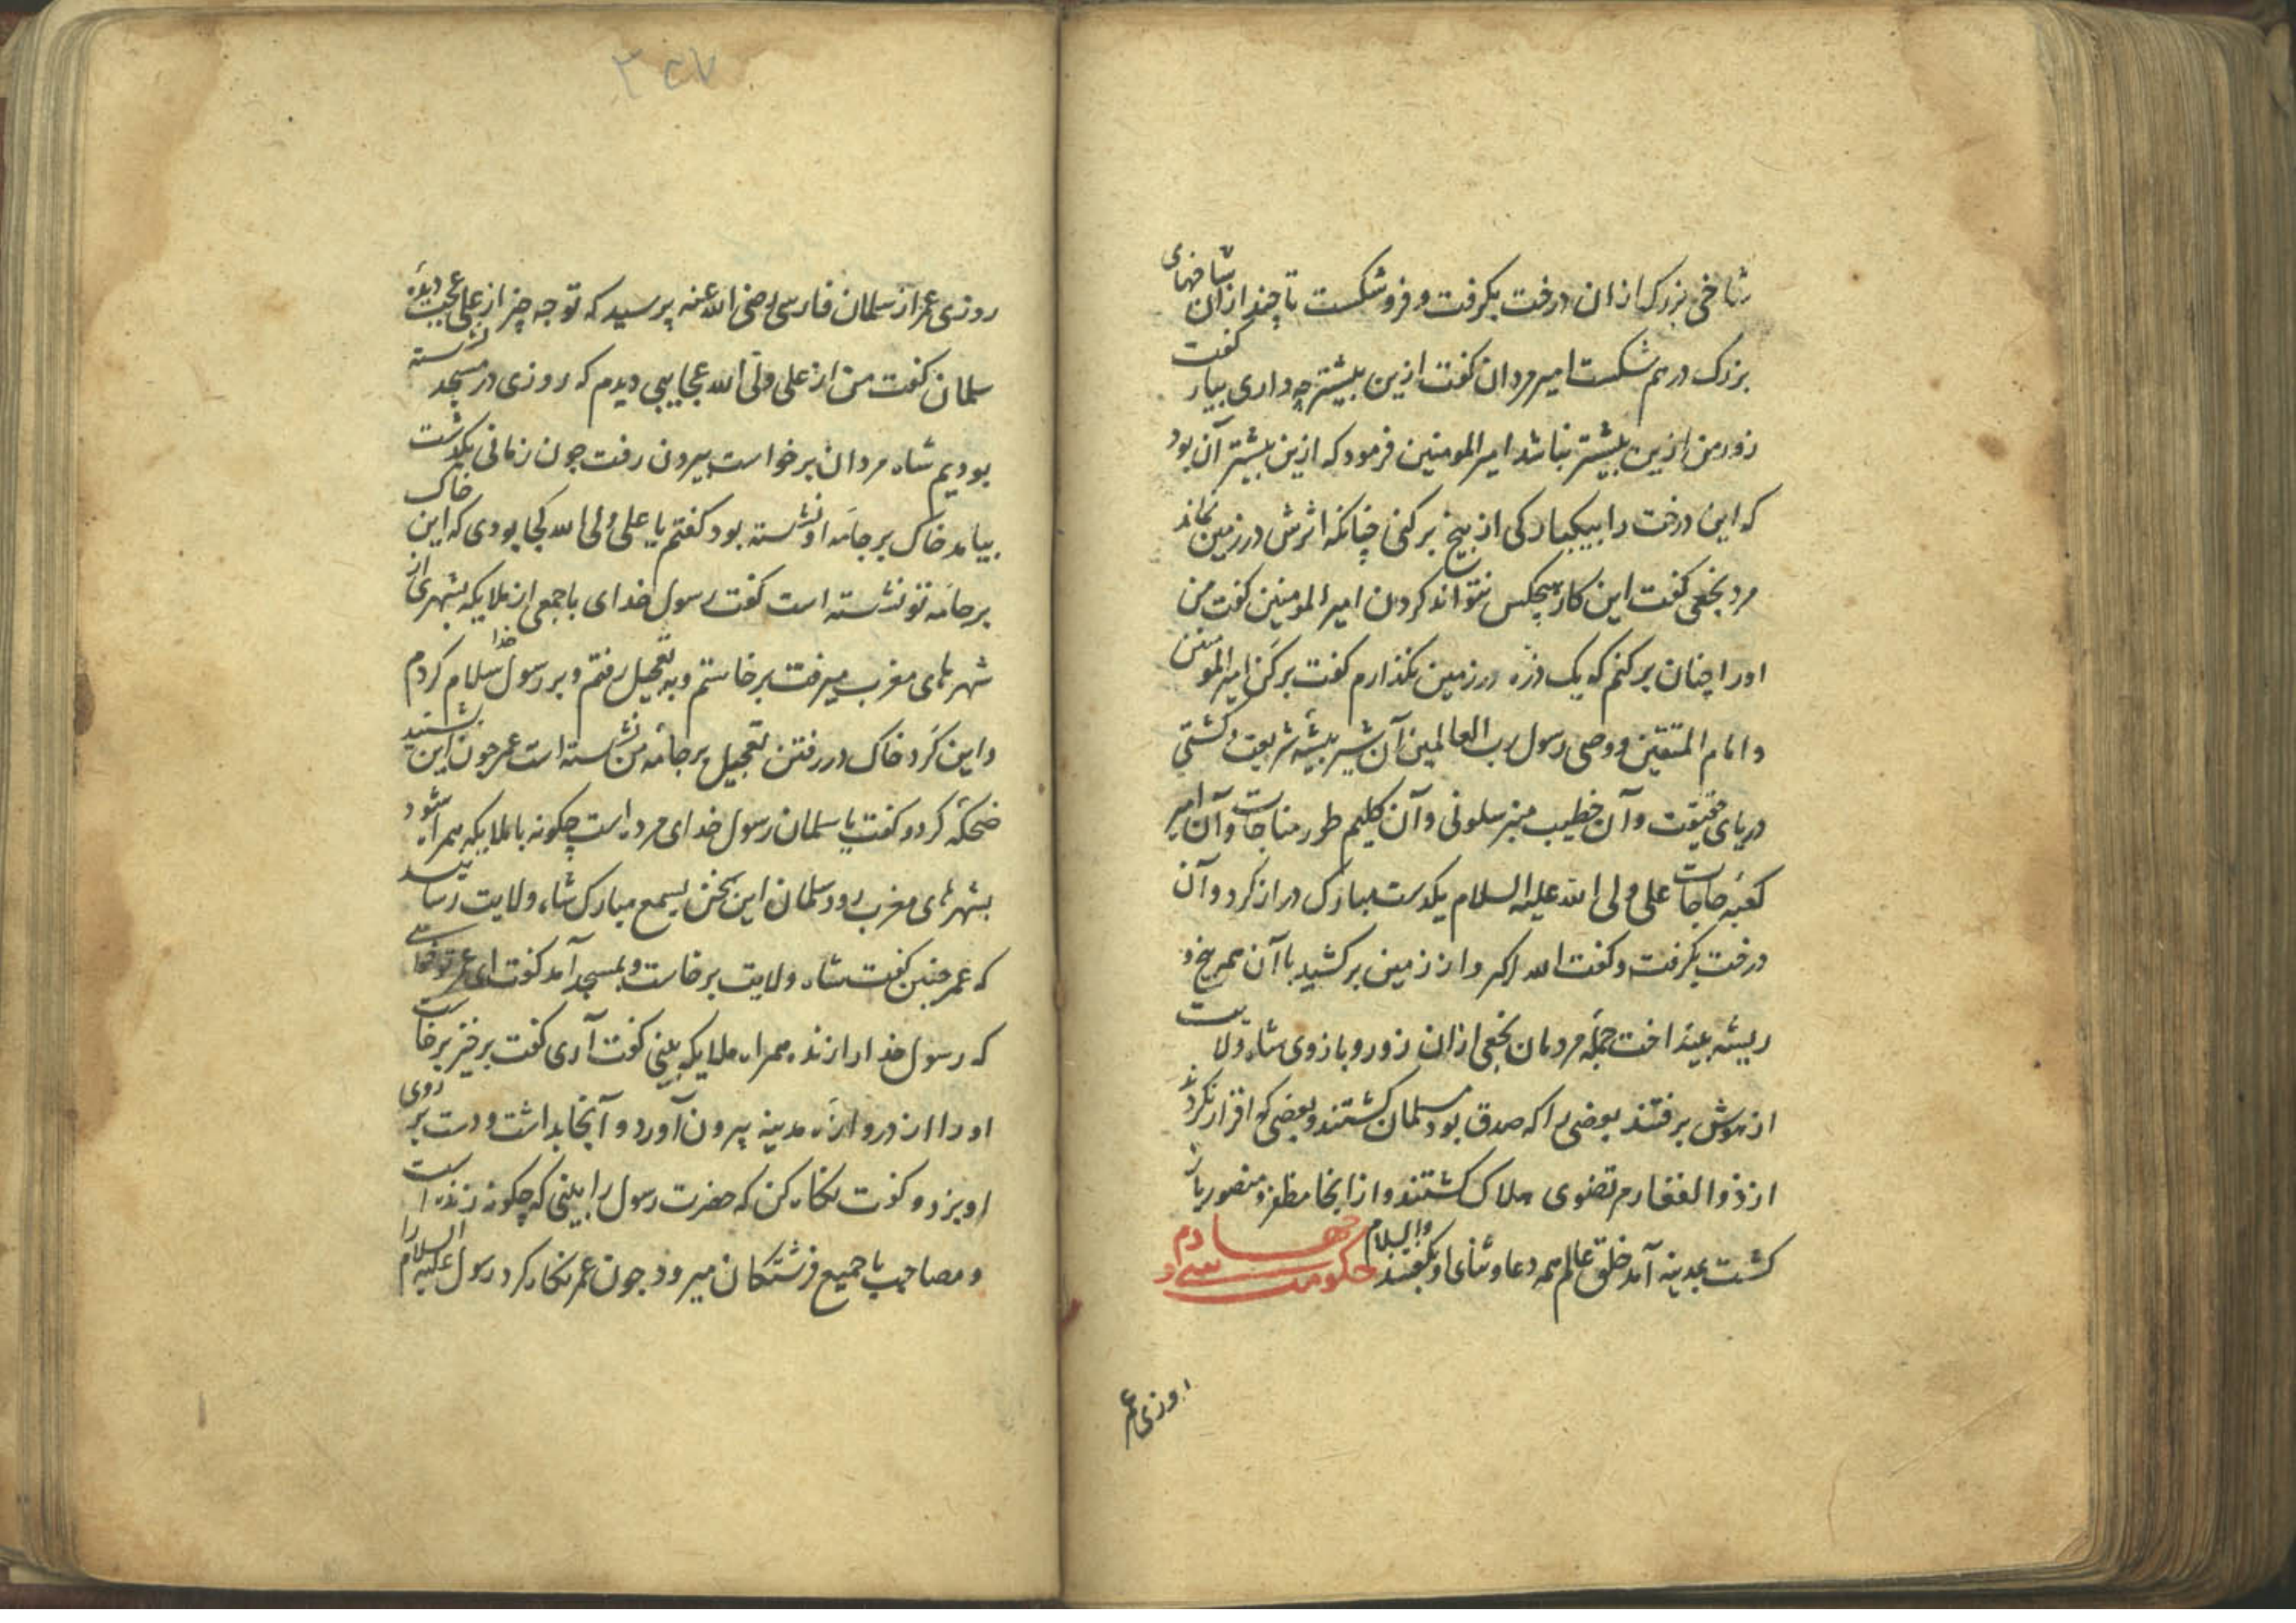 شاخی بزرک ازان درخت بکرفت و فروشکست تا چند ازان شاخهای
بزرک درهم شکست امیر مردان کفت ازین بیشتر چه داری بیار کفت
زور من ازین بیشتر نباشد امیر المومنین فرمود که ازین بیشتر آن بود
که این درخت را بیکبارکی از بیخ برکنی چنانکه اثرش در زمین نماند
مرد نخعی کفت این کار هیچکس نتواند کردن امیر المومنین کفت من
اورا چنان برکنم که یک ذره در زمین نکذارم کفت برکن امیر المومنین
و امام المتقین و وصی رسول رب العالمین آن شیر بیشه شریعت و کشتی
دریای حقیقت و آن خطیب منبر سلونی و آن کلیم طور مناجات و آن امیر
کعبه حاجات علی ولی الله علیه السلام یکدست مبارک دراز کرد و آن
درخت بکرفت و کفت الله اکبر و از زمین برکشید با آن همه بیخ و
ریشه بینداخت جمله مردمان نخعی ازان زور و بازوی شاه ولایت
از هوش برفتند بعضی را که صدق بود مسلمان کشتند و بعضی که اقرار نکردند
از ذوالفقار مرتضوی هلاک کشتند و از انجا مظفر و منصور باز
کشت بمدینه آمد خلق عالم همه دعا و ثنای او بکفتند والسلام حکومت سی و چهارم
روزی عمر
۳۲۷
روزی عمر از سلمان فارسی رضی الله عنه پرسید که تو چه چیز از علی عجیب دیده
سلمان کفت من از علی ولی الله عجایبی دیدم که روزی در مسجد نشسته
بودیم شاه مردان برخواست بیرون رفت چون زمانی بکذشت
بیامد خاک بر جامه او نشسته بود کفتم یا علی ولی الله کجا بودی که این خاک
بر جامه تو نشسته است کفت رسول خدای با جمعی از ملایکه بشهری از
شهرهای مغرب میرفت برخاستم و به تعجیل رفتم و بر رسول خدا سلام کردم
و این کرد خاک در رفتن تعجیل بر جامه من نشسته است عمر چون این بشنید
ضحکه کرد و کفت یا سلمان رسول خدای مرده است چکونه با ملایکه همراه شود
بشهرهای مغرب رود سلمان این سخن بسمع مبارک شاه ولایت رسانید
که عمر چنین کفت شاه ولایت برخاست و بمسجد آمد کفت ای عمر تو خواستی
که رسول خدا را زنده همراه ملایکه بینی کفت آری کفت برخیز برخاست
او را از دروازه مدینه بیرون آورد و آنجا بداشت و دست بر روی
او بزد و کفت نکاه کن که حضرت رسول را ببینی که چکونه زنده است
و مصاحب با جمیع فرشتکان میرود چون عمر نکاه کرد رسول علیه السلام را